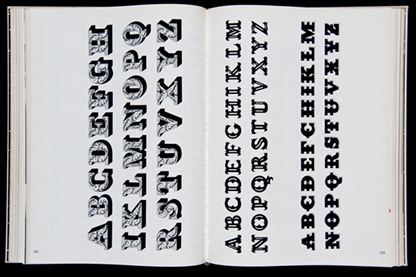 ABCDEFGH
IKLMNOPQ
RSTUVXYZ
ABCDEFGHIKLM
NOPQRSTUVXYZ
ABCDEFGHIKLM
NOPQRSTUVXYZ